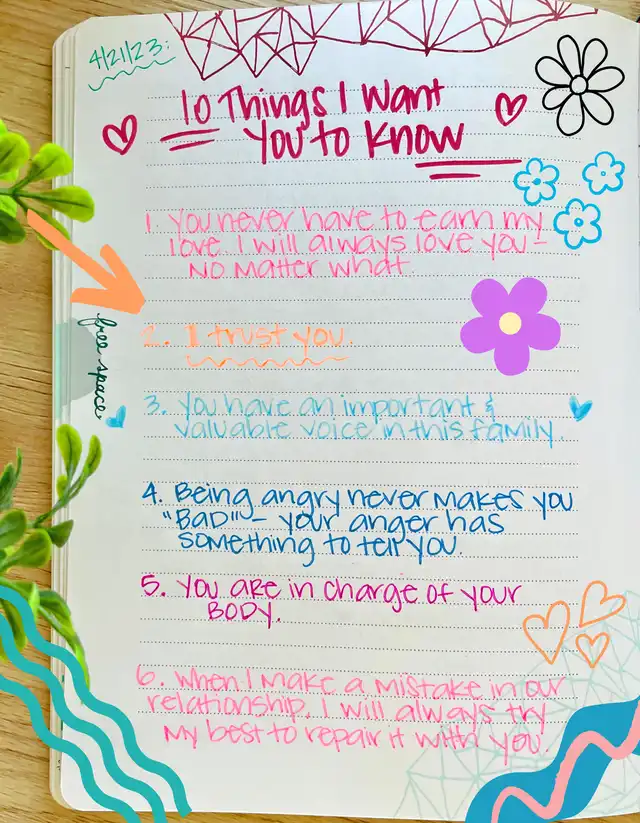 4/21/23:
10 Things I Want
You to Know
1. You never have to earn my
love. I will always love you –
No matter what.
free space
2. I trust you.
3. You have an important &
valuable voice in this family.
4. Being angry never makes you
"BAD" – your anger has
something to tell you.
5. You are in charge of your
BODY.
6. When I make a mistake in our
relationship, I will always try
my best to repair it with you.